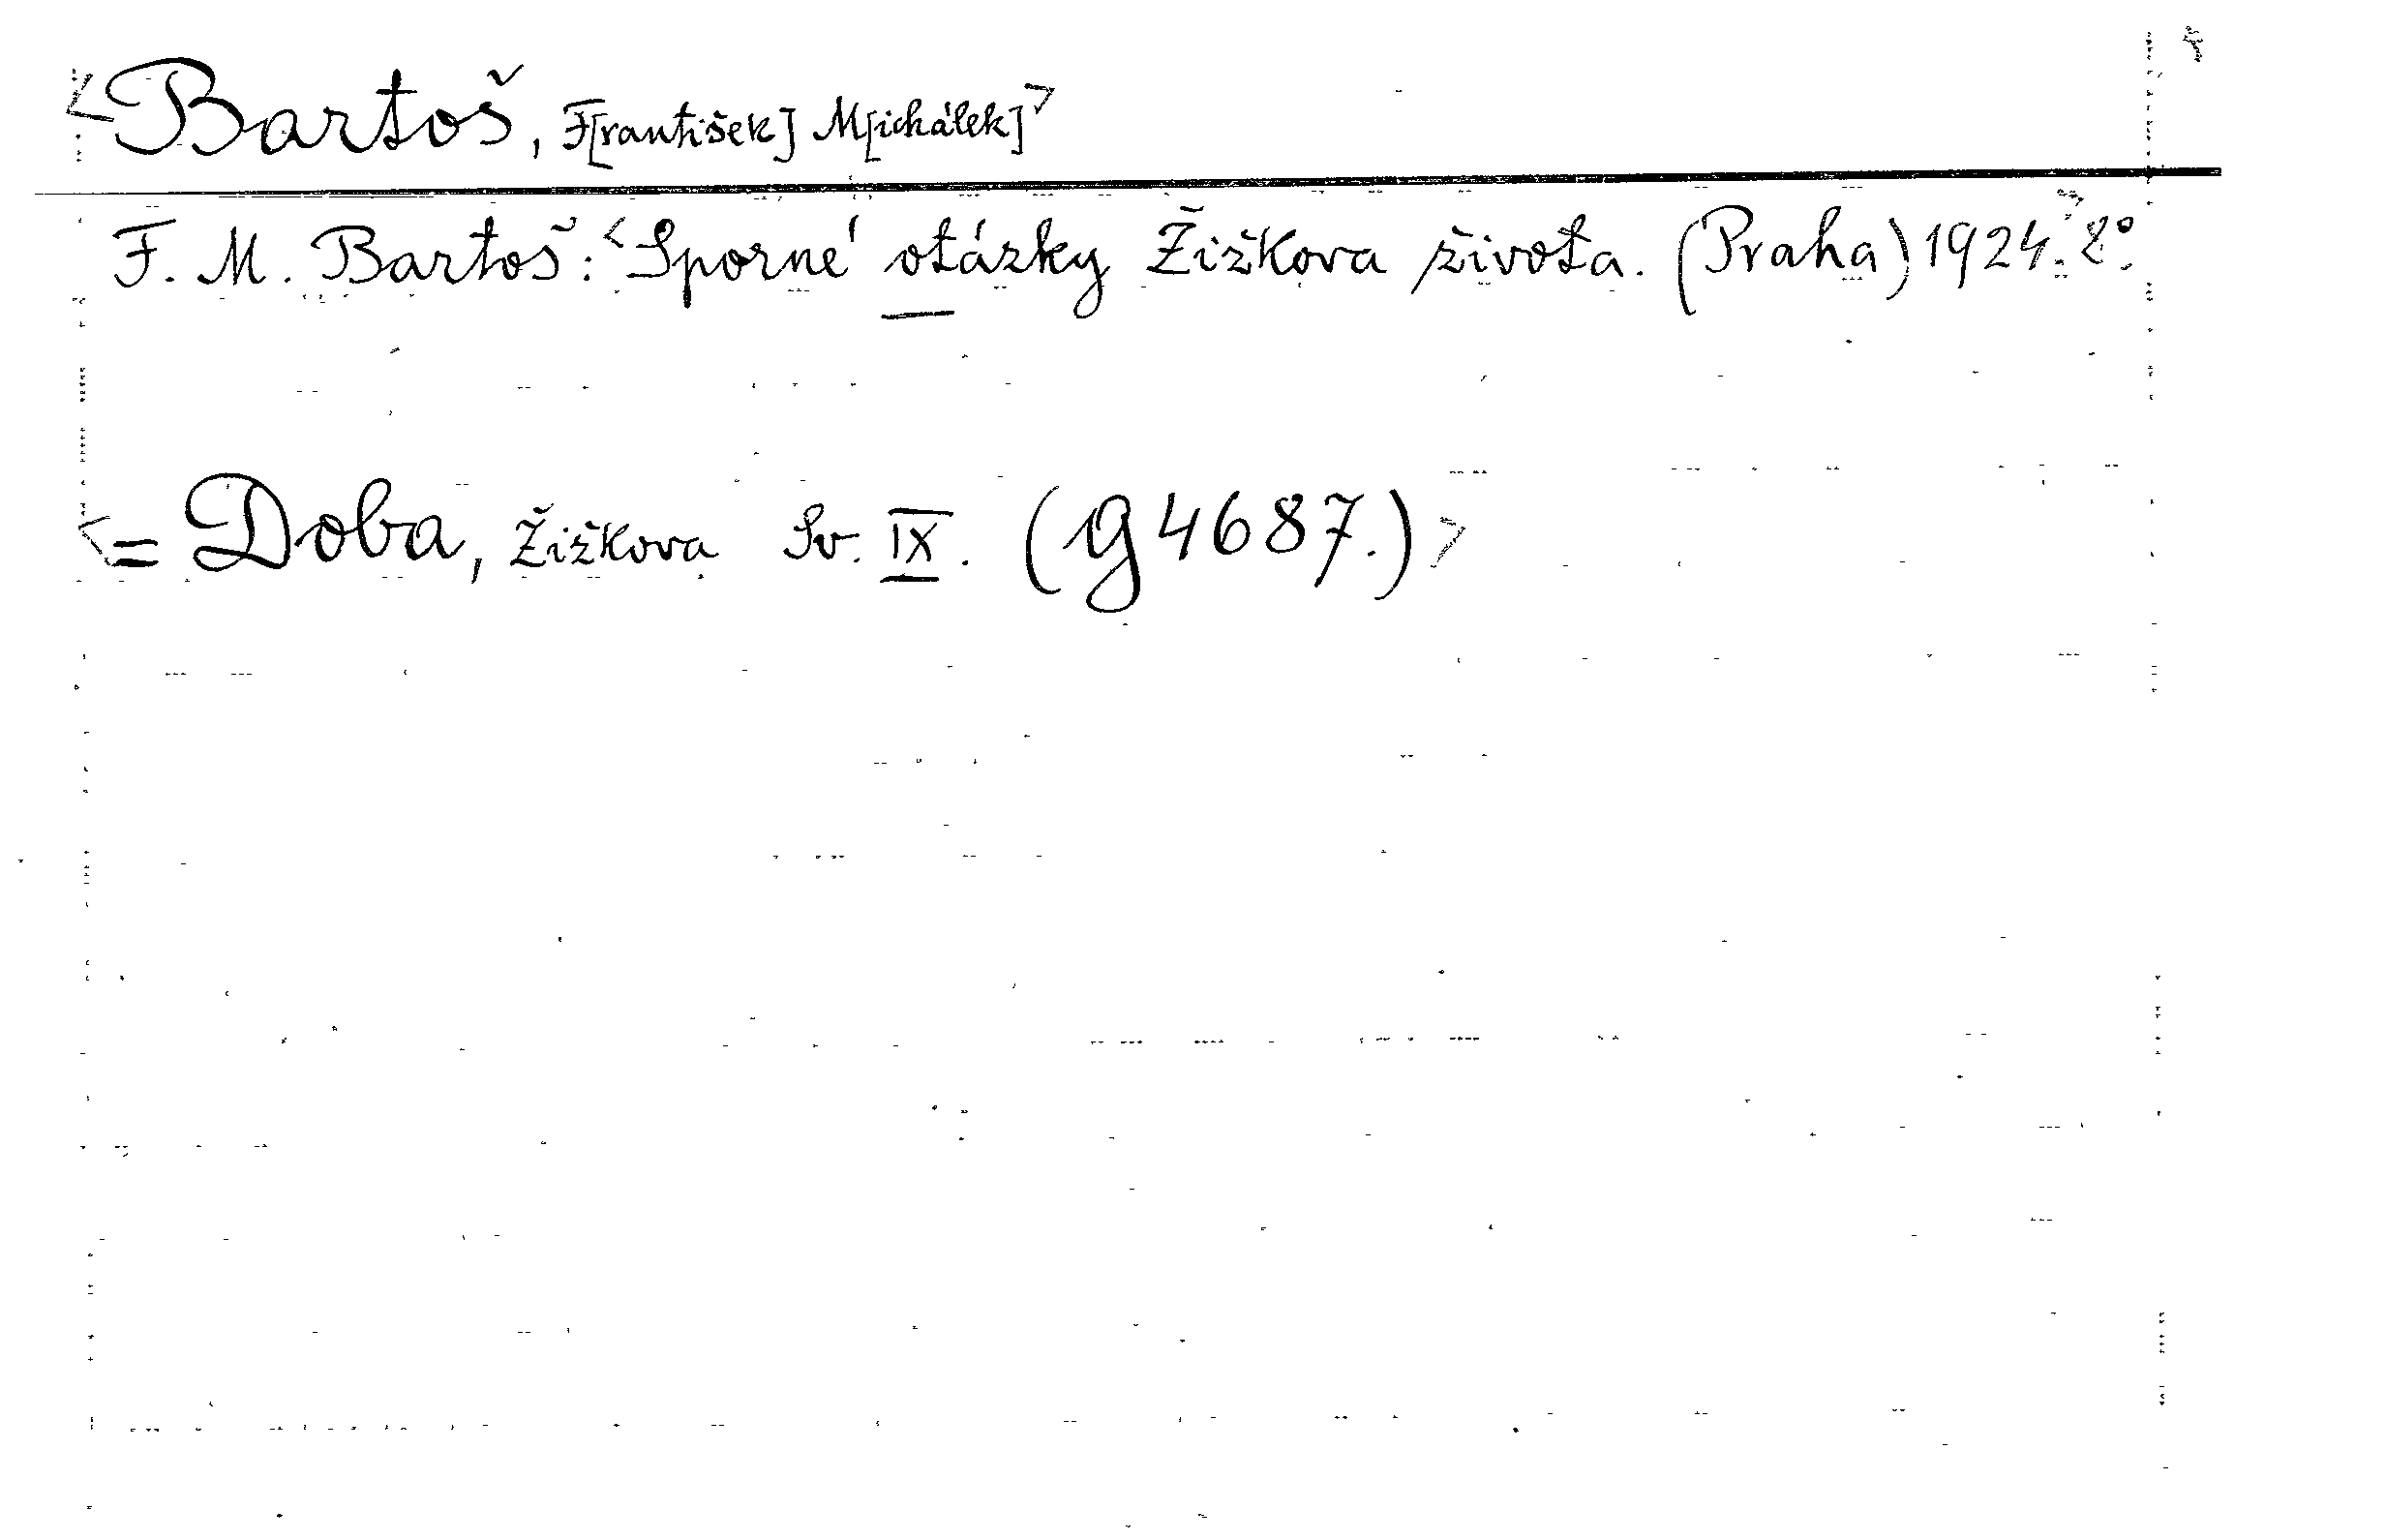 <Bartoš, F[rantišek] M[ichálek]>
F. M. Bartoš: <Sporné otázky Žižkova života. (Praha) 1924.> 8°.
<= Doba, Žižkova Sv. IX. (G 4687.)>